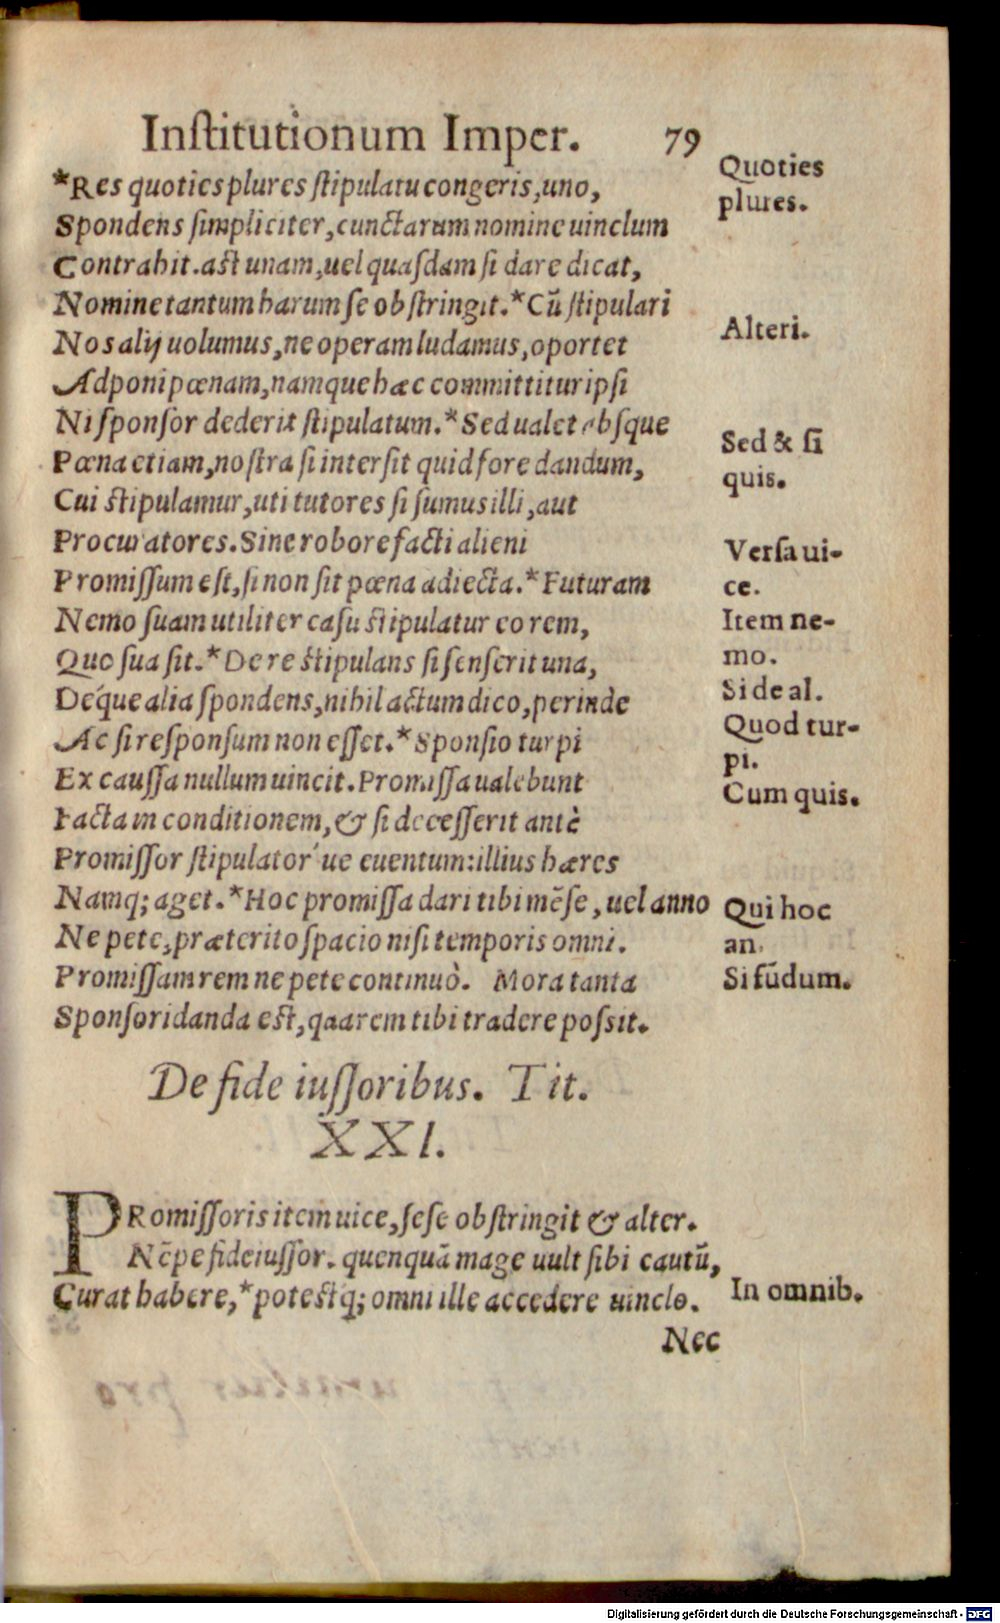 Inſtitutionum Imper. 79
*Res quoties plures ſtipulatu congeris, uno,
Spondens ſimpliciter, cunctarum nomine uinclum
Contrahit. aſt unam, uel quaſdam ſi dare dicat,
Nomine tantum harum ſe obſtringit. *Cũ ſtipulari
Nos alij uolumus, ne operam ludamus, oportet
Adponi pœnam, namque hæc committitur ipſi
Ni ſponſor dederit ſtipulatum. *Sed ualet abſque
Pœna etiam, noſtra ſi interſit quid fore dandum,
Cui ſtipulamur, uti tutores ſi ſumus illi, aut
Procuratores. Sine robore facti alieni
Promiſſum eſt, ſi non ſit pœna adiecta. *Futuram
Nemo ſuam utiliter caſu ſtipulatur eo rem,
Quo ſua ſit. *De re ſtipulans ſi ſenſerit una,
Déque alia ſpondens, nihil actum dico, perinde
Ac ſi reſponſum non eſſet. *Sponſio turpi
Ex cauſſa nullum uincit. Promiſſa ualebunt
Facta in conditionem, & ſi deceſſerit antè
Promiſſor ſtipulator´ue euentum: illius hæres
Namq; aget. *Hoc promiſſa dari tibi mẽſe, uel anno
Ne pete, præterito ſpacio niſi temporis omni.
Promiſſam rem ne pete continuò. Mora tanta
Sponſori danda eſt, qua rem tibi tradere poſsit.
Quoties
plures.
Alteri.
Sed & ſi
quis.
Verſa ui-
ce.
Item ne-
mo.
Si de al.
Quod tur-
pi.
Cum quis.
Qui hoc
an.
Si fũdum.
De fide iuſſoribus. Tit.
XXI.
PRomiſſoris item uice, ſeſe obſtringit & alter.
Nẽpe fideiuſſor. quenquã mage uult ſibi cautũ,
Curat habere, *poteſtq; omni ille accedere uinclo.
In omnib.
Nec
Digitalisierung gefördert durch die Deutsche Forschungsgemeinschaft - DFG